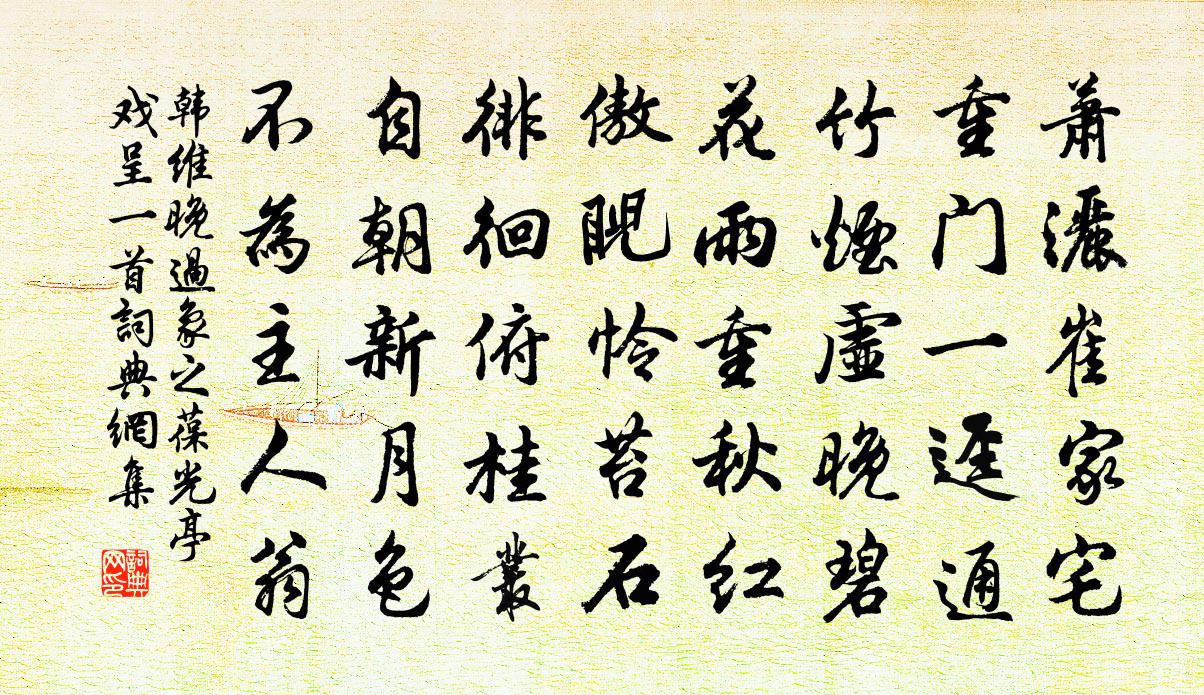 蕭灑崔家宅
重门一逕通
竹煙虛晚碧
花雨重秋红
傲睨怜苔石
徘徊俯桂叢
自朝新月色
不為主人翁
韩维晚過象之葆光亭
戏呈一首詞典網集
詞典
网印